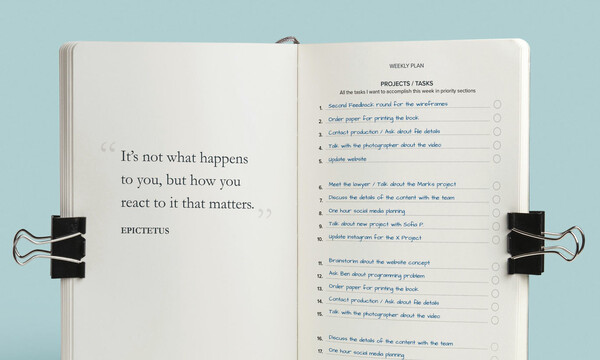 “It’s not what happens
to you, but how you
react to it that matters.”
EPICTETUS
WEEKLY PLAN
PROJECTS / TASKS
All the tasks I want to accomplish this week in priority sections
1. Second Feedback round for the wireframes
2. Order paper for printing the book
3. Contact production / Ask about file details
4. Talk with the photographer about the video
5. Update website
6. Meet the lawyer / Talk about the Marks project
7. Discuss the details of the content with the team
8. One hour social media planning
9. Talk about new project with Sofia P.
10. Update instagram for the X Project
11. Brainstorm about the website concept
12. Ask Ben about programming problem
13. Order paper for printing the book
14. Contact production / Ask about file details
15. Talk with the photographer about the video
16. Discuss the details of the content with the team
17. One hour social media planning